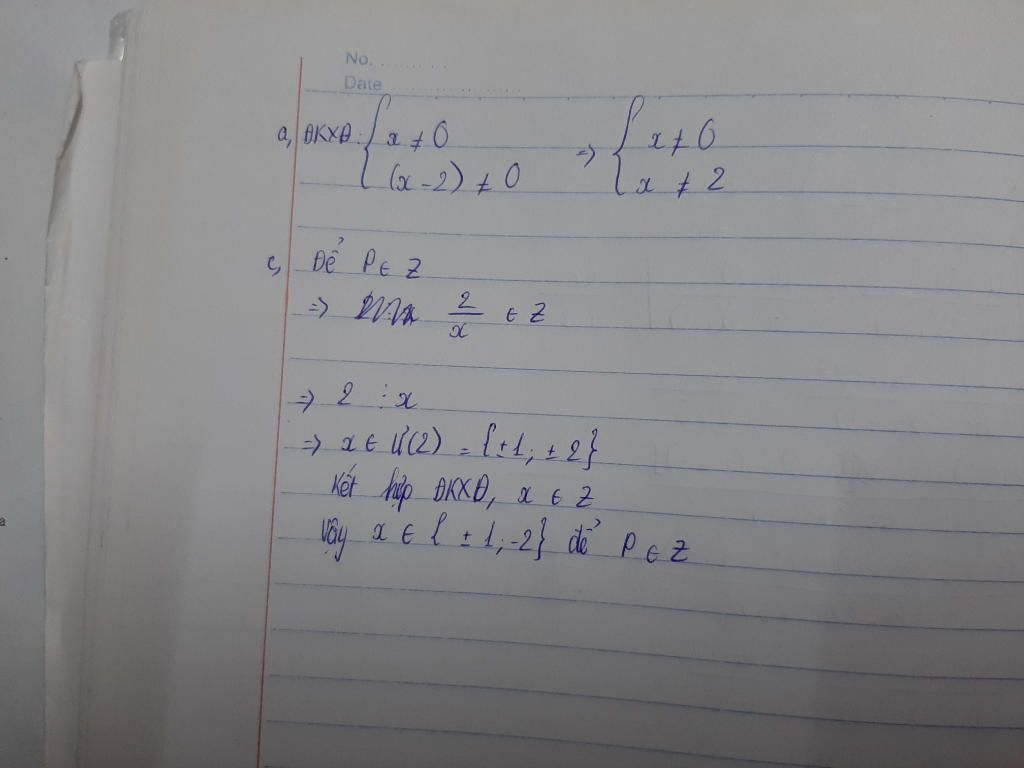 No. ..........
Date ......................
a, ĐKXĐ: { x ≠ 0 => { x ≠ 0
(x - 2) ≠ 0 x ≠ 2
c, Để P ∈ Z
=> 2/x ∈ Z
=> 2 ⋮ x
=> x ∈ Ư(2) = {±1; ±2}
Kết hợp ĐKXĐ, x ∈ Z
Vậy x ∈ { ±1; -2} để P ∈ Z
a